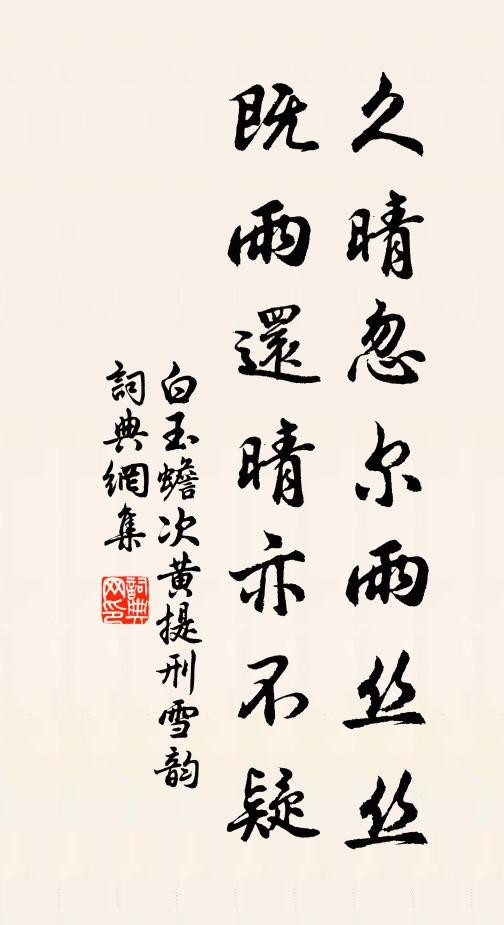 久晴忽尔雨丝丝
既雨還晴亦不疑
白玉蟾次黄提刑雪韵
詞典網集
詞典網印